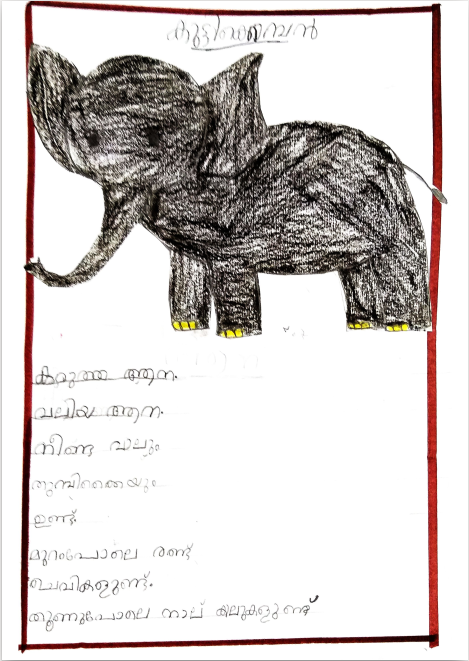 കുട്ടിക്കൊമ്പൻ
കറുത്ത ആന.
വലിയ ആന.
നീണ്ട വാലും
തുമ്പിക്കൈയും
ഉണ്ട്.
മുറംപോലെ രണ്ട്
ചെവികളുണ്ട്.
തൂണുപോലെ നാല് കലുകളുണ്ട്